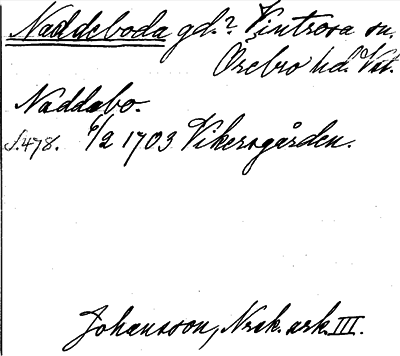 Naddeboda gd.? Vintrosa sn.
Örebro hd. Nke.
Naddabo.
S. 478. 6/2 1703 Vikersgården.
Johansson, Nrsk. ark. III.